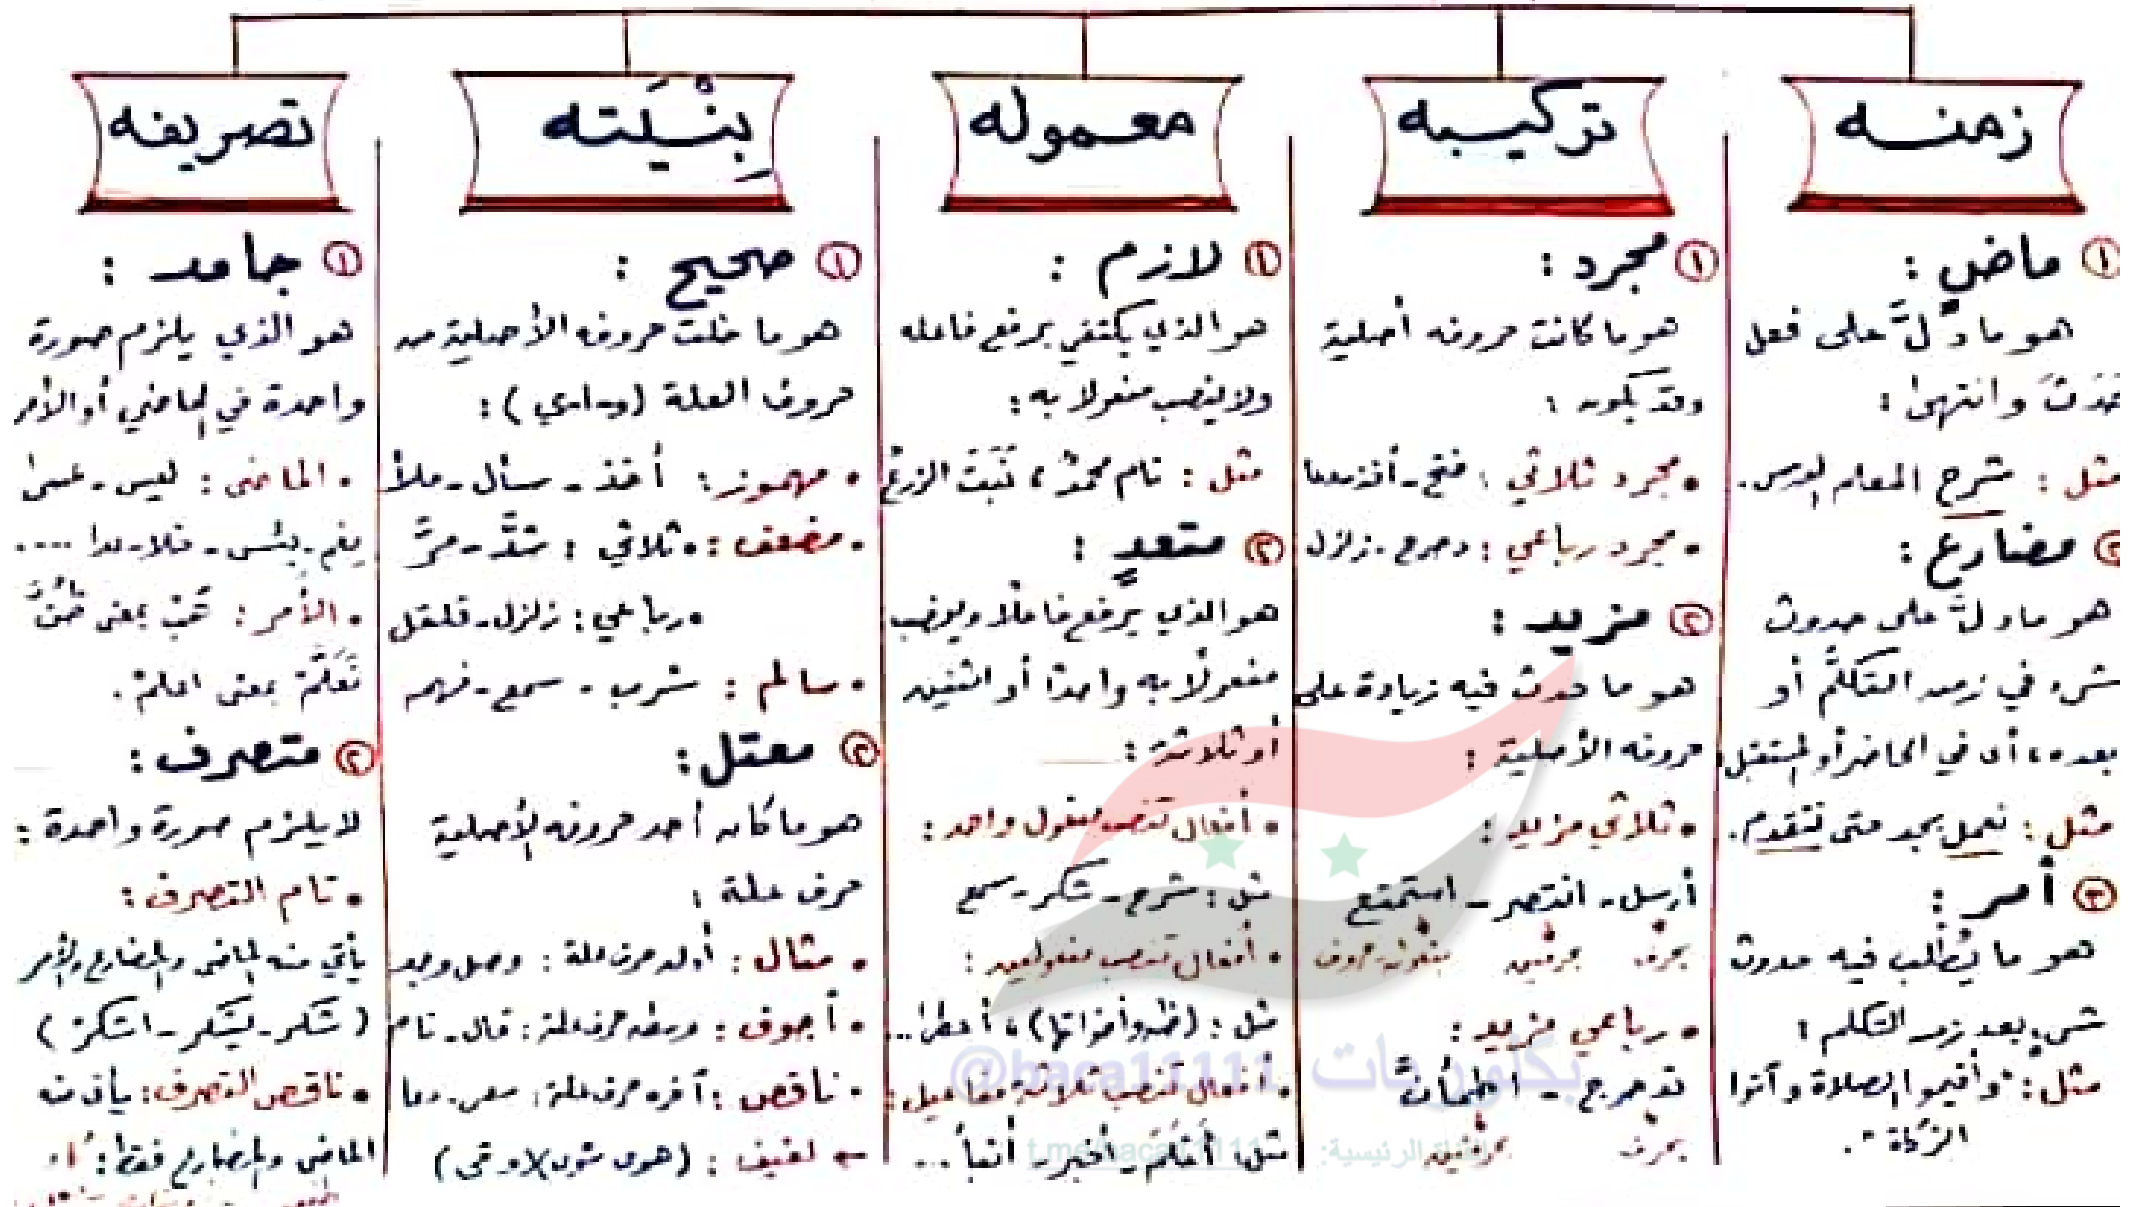 زمنه
① ماضٍ :
هو ما دلَّ على فعل
حَدَثَ وانتهى :
مثل : شرح المعلم الدرس.
② مضارع :
هو ما دلَّ على حدوث
شيء في زمن التكلُّم أو
بعده، أي في الحاضر أو المستقبل
مثل : نعمل بجد حتى نتقدم.
③ أمر :
هو ما يُطلب فيه حدوث
شيء بعد زمن التكلم :
مثل : "وأقيموا الصلاة وآتوا
الزكاة".
تركيبه
① مجرد :
هو ما كانت حروفه أصلية
وقد يكون :
• مجرد ثلاثي : فتح - أخذ
• مجرد رباعي : دحرج - زلزل
② مزيد :
هو ما حدث فيه زيادة على
حروفه الأصلية :
• ثلاثي مزيد :
أرسل - انتصر - استمتع
بحرف بحرفين بثلاثة حروف
• رباعي مزيد :
تدحرج - اطمأنَّ
بحرف بحرفين
معموله
① لازم :
هو الذي يكتفي برفع فاعله
ولا ينصب مفعولا به :
مثل : نام محمدٌ، نَبَتَ الزرعُ
② متعدٍ :
هو الذي يرفع فاعلًا وينصب
مفعولًا به واحدًا أو اثنين
أو ثلاثة :
• أفعال تنصب مفعول واحد :
مثل : شرح - شكر - سمع
• أفعال تنصب مفعولين :
مثل : (ظن وأخواتها)، أعطى...
• أفعال تنصب ثلاثة مفاعيل :
مثل: أَعْلَمَ - أخبر - أنبأ ...
بِنْيَته
① صحيح :
هو ما خلت حروفه الأصلية من
حروف العلة (و-ا-ي) :
• مهموز : أخذ - سأل - ملأ
• مضعف : • ثلاثي : شدَّ - مرَّ
• رباعي : زلزل - قلقل
• سالم : شرب - سمع - فهم
② معتل :
هو ما كان أحد حروفه الأصلية
حرف علة :
• مثال : أوله حرف علة : وصل وجد
• أجوف : وسطه حرف علة : قال - نام
• ناقص : آخره حرف علة : سعى - دعا
← لفيف : (هوى شوى) (وقى)
تصريفه
① جامد :
هو الذي يلزم صورة
واحدة في الماضي أو الأمر
• الماضي : ليس - عسى
نِعم - بئس - خلا - عدا ....
• الأمر : هَبْ بمعنى ظُنَّ
تَعَلَّمْ بمعنى اعلمْ.
② متصرف :
لا يلزم صورة واحدة :
• تام التصرف :
يأتي منه الماضي والمضارع والأمر
(شكر - يشكر - اشكرْ)
• ناقص التصرف : يأتي منه
الماضي والمضارع فقط :
بكلوريات @baca11111
الرئيسية: t.me/baca11111